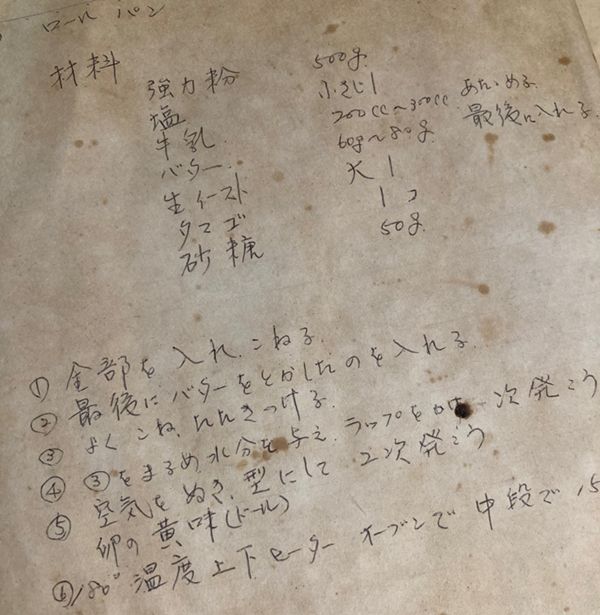 ロール パン
材料
強力粉 500g
塩 小さじ1
牛乳 200cc〜300cc あたゝめる
バター 60g〜80g 最後に入れる
生イースト 大 1
タマゴ 1コ
砂糖 50g
① 全部を入れ、こねる。
② 最後にバターをとかしたのを入れる。
③ よくこね、たたきつける
④ ③をまるめ、水分を与え、ラップをかけ 一次発こう
⑤ 空気をぬき、型にして 2次発こう
卵の黄味(ドール)
⑥ 180° 温度上下ヒーター オーブンで 中段で 15